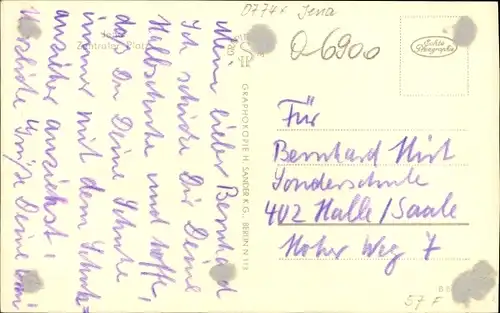 07745 Jena
Q6900
Jena
Zentraler Platz
Mein lieber Bernhard
Ich schicke Dir Deine
Halbschuhe und hoffe,
daß Du Deine Schuhe
immer mit dem Schuh=
anzieher anziehst!
Herzliche Grüße Deine
GRAPHOKOPIE H. SANDER K.G., BERLIN N 113
Echte
Photographie
Für
Bernhard Hirt
Sonderschule
402 Halle/Saale
Hoher Weg 7
57 F